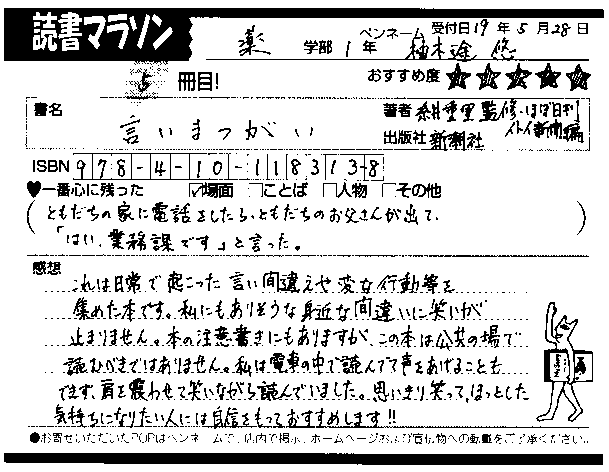 読書マラソン
薬 学部 1 年
ペンネーム
受付日19年5月28日
柚木 悠
5 冊目!
おすすめ度 ★★★★★
書名
言いまつがい
著者 糸井重里 監修・ほぼ日刊イトイ新聞 編
出版社 新潮社
ISBN 978-4-10-118313-8
♥一番心に残った ☑場面 □ことば □人物 □その他
(ともだちの家に電話をしたら、ともだちのお父さんが出て、
「はい、業務課です」と言った。)
感想
これは日常で起こった言い間違えや変な行動等を
集めた本です。私にもありそうな身近な間違いに笑いが
止まりません。本の注意書きにもありますが、この本は公共の場で
読むべきではありません。私は電車の中で読んでて声をあげることも
できず、肩を震わせて笑いながら読んでいました。思いきり笑って、ほっとした
気持ちになりたい人には自信をもっておすすめします!!
●お寄せいただいたPOPはペンネームで、店内で掲示、ホームページおよび宣伝物への転載をご了承ください。